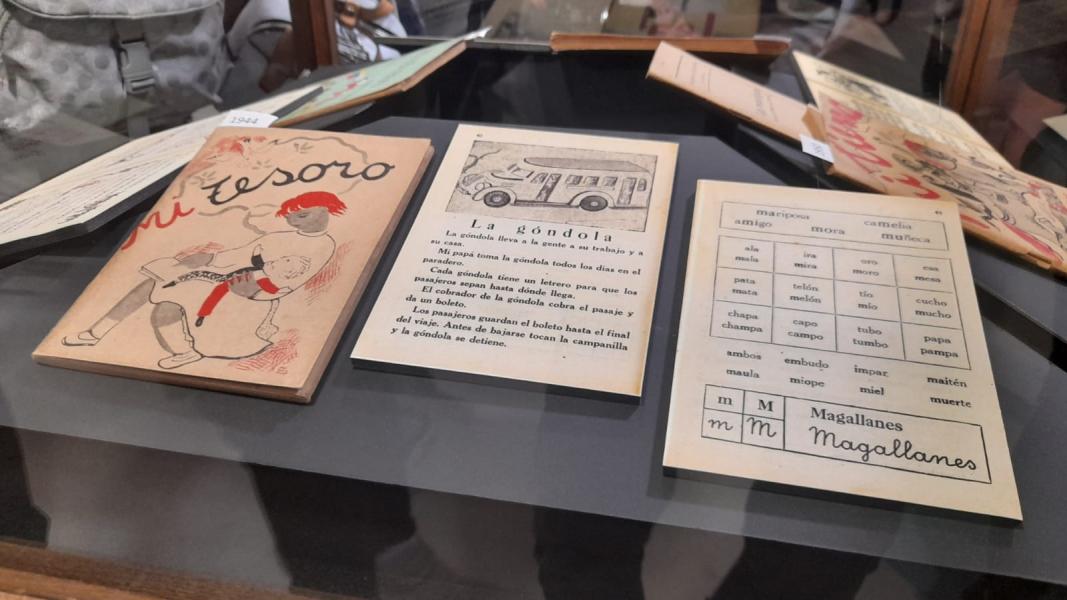 1944
mi tesoro
La góndola
La góndola lleva a la gente a su trabajo y a
su casa.
Mi papá toma la góndola todos los días en el
paradero.
Cada góndola tiene un letrero para que los
pasajeros sepan hasta dónde llega.
El cobrador de la góndola cobra el pasaje y
da un boleto.
Los pasajeros guardan el boleto hasta el final
del viaje. Antes de bajarse tocan la campanilla
y la góndola se detiene.
mariposa camelia
amigo mora muñeca
ala ira oro esa
mala mira moro mesa
pata telón tío cucho
mata melón mío mucho
chapa capo tubo papa
champa campo tumbo pampa
ambos embudo impar maitén
maula miope miel muerte
m M Magallanes
m M Magallanes